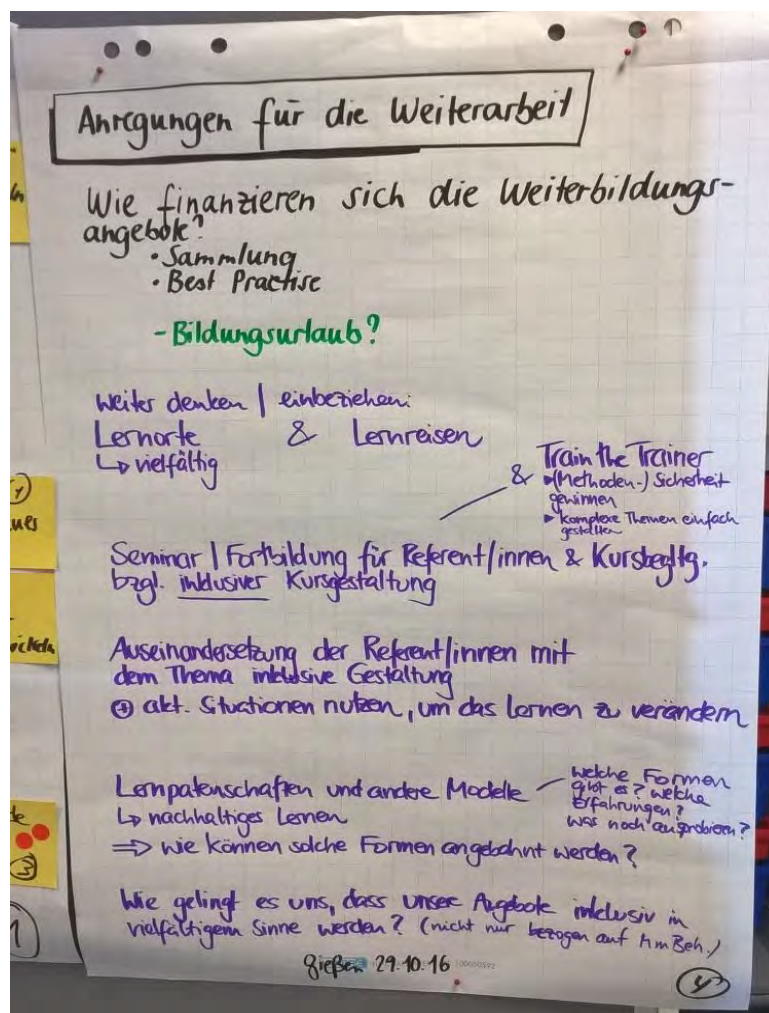 Anregungen für die Weiterarbeit
Wie finanzieren sich die Weiterbildungs-
angebote?
• Sammlung
• Best Practise
- Bildungsurlaub?
weiter denken / einbeziehen:
Lernorte & Lernreisen
↳ vielfältig
& Train the Trainer
▸ (Methoden-) Sicherheit
gewinnen
▸ komplexe Themen einfach
gestalten
Seminar / Fortbildung für Referent/innen & Kursbegltg.
bzgl. inklusiver Kursgestaltung
Auseinandersetzung der Referent/innen mit
dem Thema inklusive Gestaltung
akt. Situationen nutzen, um das Lernen zu verändern
Lernpatenschaften und andere Modelle
↳ nachhaltiges Lernen
welche Formen
gibt es? welche
Erfahrungen?
was noch ausprobieren?
⇒ wie können solche Formen angebahnt werden?
Wie gelingt es uns, dass unsere Angebote inklusiv in
vielfältigem Sinne werden? (nicht nur bezogen auf Beh.)
Gießen 29.10.16
4
3
1